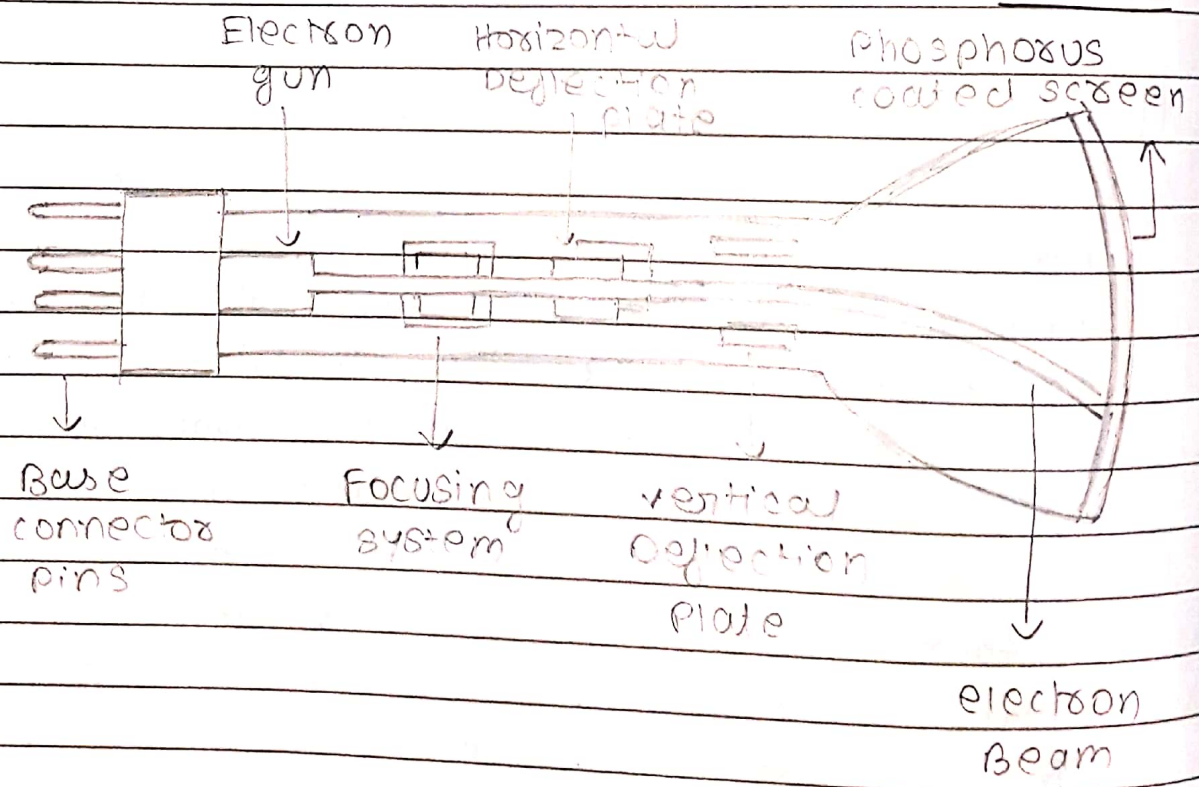 Electron
gun
Horizontal
Deflection
plate
Phosphorus
coated screen
Base
connector
pins
Focusing
system
vertical
Deflection
Plate
electron
Beam